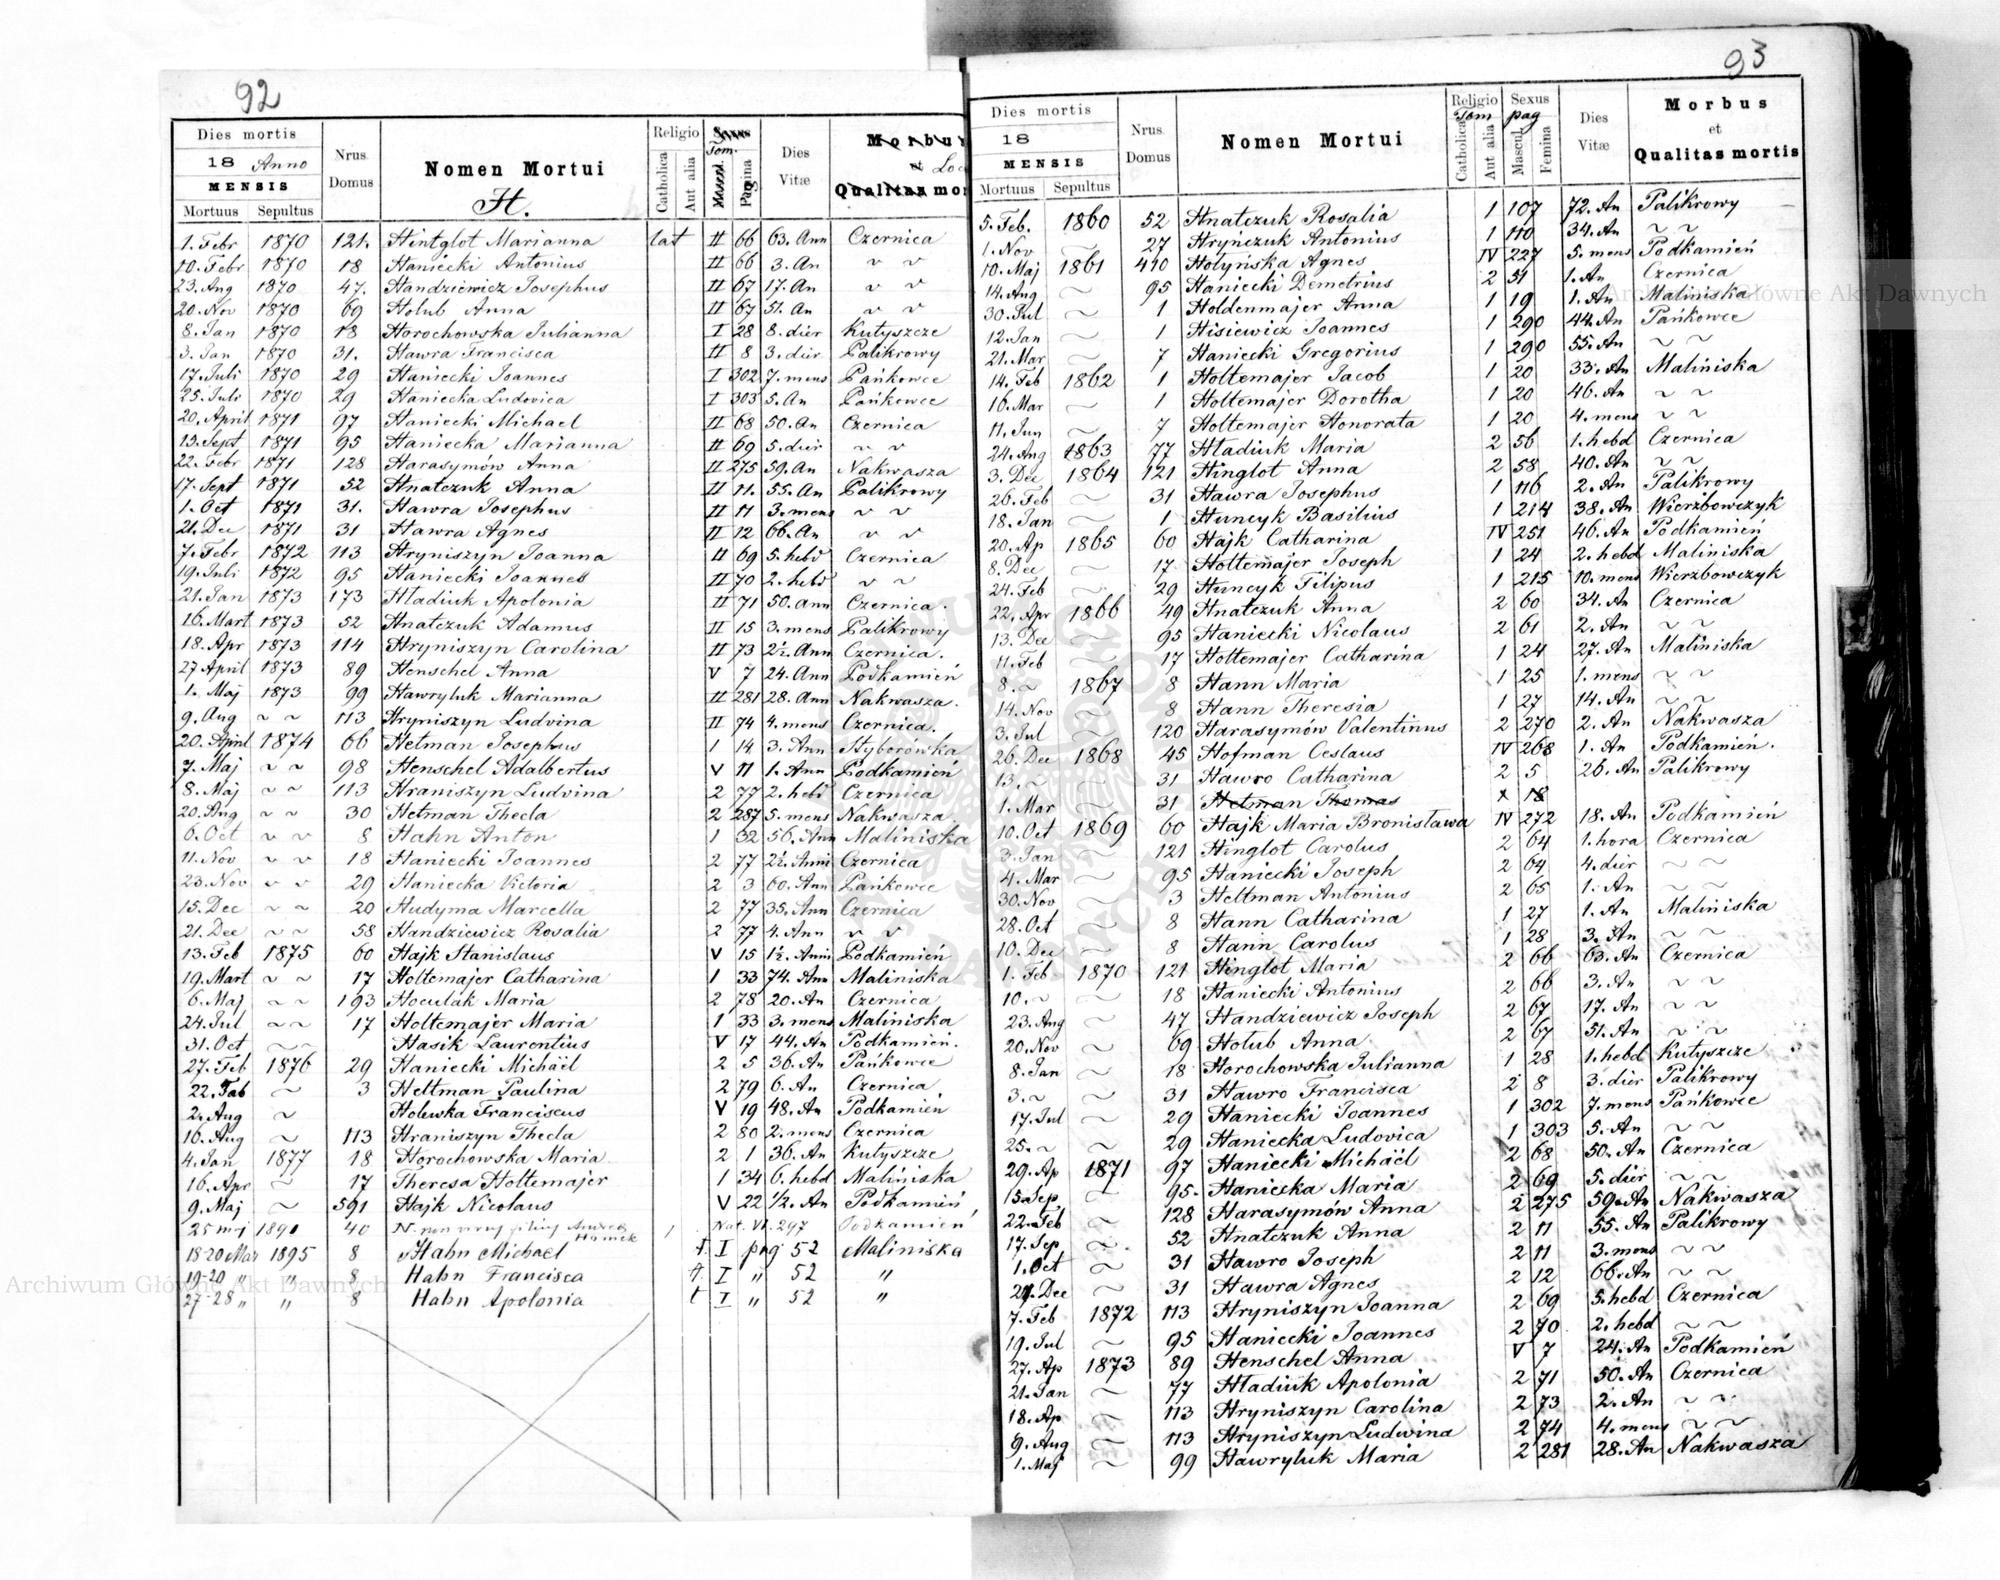 92
Dies mortis Nrus Domus Nomen Mortui Religio Dies Vitæ Morbus et Qualitas mor
18 Anno Tom. Loc
MENSIS Catholica Aut alia Mascul. Pagina
Mortuus Sepultus H.
1. Febr 1870 121. Hintglot Marianna lat II 66 63. Ann Czernica
10. Febr 1870 18 Haniecki Antonius II 66 3. An ~ ~
23. Aug 1870 47. Handziewicz Josephus II 67 17. An ~ ~
20. Nov 1870 69 Holub Anna II 67 51. An ~ ~
8. Jan 1870 18 Horochowska Julianna I 28 8. dier Kutyszcze
3. Jan 1870 31. Hawra Francisca II 8 3. dier Palikrowy
17. Juli 1870 29 Haniecki Joannes I 302 7. mens Pańkowce
25. Juli 1870 29 Haniecka Ludovica I 303 5. An Pańkowce
20. April 1871 97 Haniecki Michael II 68 50. An Czernica
13. Sept 1871 95 Haniecka Marianna II 69 5. dier ~ ~
22. Febr 1871 128 Harasymów Anna II 275 59. An Nakwasza
17. Sept 1871 52 Hnatczuk Anna II 11. 55. An Palikrowy
1. Oct 1871 31. Hawra Josephus II 11 3. mens ~ ~
21. Dec 1871 31 Hawra Agnes II 12 66. An ~ ~
7. Febr 1872 113 Hryniszyn Joanna II 69 5. hebd Czernica
19. Juli 1872 95 Haniecki Joannes II 70 2. hebd ~ ~
21. Jan 1873 173 Hladiuk Apolonia II 71 50. ann Czernica.
16. Mart 1873 52 Hnatczuk Adamus II 15 3. mens Palikrowy
18. Apr 1873 114 Hryniszyn Carolina II 73 2½. Ann Czernica.
27 April 1873 89 Henschel Anna V 7 24. Ann Podkamień
1. Maj 1873 99 Hawryluk Marianna II 281 28. Ann Nakwasza.
9. Aug ~ ~ 113 Hryniszyn Ludvina II 74 4. mens Czernica.
20. April 1874 66 Hetman Josephus 1 14 3. Ann Styborówka
7. Maj ~ ~ 98 Henschel Adalbertus V 11 1. Ann Podkamień
8. Maj ~ ~ 113 Hraniszyn Ludvina 2 77 2. hebd Czernica
20. Aug ~ ~ 30 Hetman Thecla 2 287 5. mens Nakwasza
6. Oct ~ ~ 8 Hahn Anton 1 32 56. Ann Maliniska
11. Nov ~ ~ 18 Haniecki Joannes 2 77 2½. Anni Czernica
23. Nov ~ ~ 29 Haniecka Victoria 2 3 60. Ann Pańkowce
15. Dec ~ ~ 20 Hudyma Marcella 2 77 35. Ann Czernica
21. Dec ~ ~ 58 Handziewicz Rosalia 2 77 4. Ann ~ ~
13. Feb 1875 60 Hajk Stanislaus V 15 1½. Anni Podkamień
19. Mart ~ ~ 17 Holtemajer Catharina 1 33 74. Ann Maliniska
6. Maj ~ ~ 193 Hoculák Maria 2 78 20. An Czernica
24. Jul ~ ~ 17 Holtemajer Maria 1 33 3. mens Maliniska
31. Oct ~ ~ Hasik Laurentius V 17 44. An Podkamień.
27. Feb 1876 29 Haniecki Michäel 2 5 36. An Pańkowce
22. Feb ~ 3 Heltman Paulina 2 79 6. An Czernica
2. Aug ~ Holewka Franciscus V 19 48. An Podkamień
16. Aug ~ 113 Hraniszyn Thecla 2 80 2. mens Czernica
4. Jan 1877 18 Horochowska Maria 2 1 36. An Kutyszcze
16. Apr ~ 17 Theresa Holtemajer 1 34 6. hebd Maliniska
9. Maj ~ 591 Hajk Nicolaus V 22 ½. An Podkamień
25 maj 1890 40 N. non Nat. VI. 297 Podkamień
18-20 Mar 1895 8 Hahn Michael I pag 52 Maliniska
19-20 " " 8 Hahn Francisca I " 52 "
27-28 " " 8 Hahn Apolonia I " 52 "
93
Dies mortis Nrus Domus Nomen Mortui Religio Sexus Dies Vitæ Morbus et Qualitas mortis
18 Tom pag
MENSIS Catholica Aut alia Mascul. Femina
Mortuus Sepultus
5. Feb. 1860 52 Hnatczuk Rosalia 1 107 72. An Palikrowy
1. Nov 27 Hryńczuk Antonius 1 110 34. An ~ ~
10. Maj 1861 410 Hołyńska Agnes IV 227 5. mens Podkamień
14. Aug ~ 95 Haniecki Demetrius 2 51 1. An Czernica
30. Jul ~ 1 Holdenmajer Anna 1 19 1. An Maliniska
12. Jan ~ 1 Hisiewicz Joannes 1 290 44. An Pańkowce
21. Mar ~ 7 Haniecki Gregorius 1 290 55. An ~ ~
14. Feb 1862 1 Holtemajer Jacob 1 20 33. An Maliniska
16. Mar ~ 1 Holtemajer Dorotha 1 20 46. An ~ ~
11. Jun ~ 7 Holtemajer Honorata 1 20 4. mens ~ ~
24. Aug 1863 77 Hladiuk Maria 2 56 1. hebd Czernica
3. Dec 1864 121 Hinglot Anna 2 58 40. An ~ ~
26. Feb ~ 31 Hawra Josephus 1 116 2. An Palikrowy
18. Jan ~ 1 Huncyk Basilius 1 214 38. An Wierzbowczyk
20. Ap 1865 60 Hajk Catharina IV 251 46. An Podkamień
8. Dec ~ 17 Holtemajer Joseph 1 24 2. hebd Maliniska
24. Feb ~ 29 Huncyk Filipus 1 215 10. mens Wierzbowczyk
22. Apr 1866 49 Hnatczuk Anna 2 60 34. An Czernica
13. Dec ~ 95 Haniecki Nicolaus 2 61 2. An ~ ~
11. Feb ~ 17 Holtemajer Catharina 1 24 27. An Maliniska
8. ~ 1867 8 Hann Maria 1 25 1. mens ~ ~
14. Nov ~ 8 Hann Theresia 1 27 14. An ~ ~
3. Jul ~ 120 Harasymów Valentinus 2 270 2. An Nakwasza
26. Dec 1868 45 Hofman Ceslaus IV 268 1. An Podkamień.
13. ~ ~ 31 Hawro Catharina 2 5 26. An Palikrowy
1. Mar ~ 31 Hetman Thomas x 18
10. Oct 1869 60 Hajk Maria Bronisława IV 272 18. An Podkamień
3. Jan ~ 121 Hinglot Carolus 2 64 1. hora Czernica
4. Mar ~ 95 Haniecki Joseph 2 64 4. dier ~ ~
30. Nov ~ 3 Heltman Antonius 2 65 1. An ~ ~
28. Oct ~ 8 Hann Catharina 1 27 1. An Maliniska
10. Dec ~ 8 Hann Carolus 1 28 3. An ~ ~
1. Feb 1870 121 Hinglot Maria 2 66 63. An Czernica
10. ~ ~ 18 Haniecki Antonius 2 66 3. An ~ ~
23. Aug ~ 47 Handziewicz Joseph 2 67 17. An ~ ~
20. Nov ~ 69 Holub Anna 2 67 51. An ~ ~
8. Jan ~ 18 Horochowska Julianna 1 28 1. hebd Kutyszcze
3. ~ ~ 31 Hawro Francisca 2 8 3. dier Palikrowy
17. Jul ~ 29 Haniecki Joannes 1 302 7. mens Pańkowce
25. ~ ~ 29 Haniecka Ludovica 1 303 5. An ~ ~
29. Ap 1871 97 Haniecki Michäel 2 68 50. An Czernica
15. Sep ~ 95. Haniecka Maria 2 69 5. dier ~ ~
22. Feb ~ 128 Harasymów Anna 2 275 59. An Nakwasza
17. Sep ~ 52 Hnatczuk Anna 2 11 55. An Palikrowy
1. Oct ~ 31 Hawro Joseph 2 11 3. mens ~ ~
21. Dec ~ 31 Hawra Agnes 2 12 66. An ~ ~
7. Feb 1872 113 Hryniszyn Joanna 2 69 5. hebd Czernica
19. Jul ~ 95 Haniecki Joannes 2 70 2. hebd ~ ~
27. Ap 1873 89 Henschel Anna V 7 24. An Podkamień
21. Jan ~ 77 Hladiuk Apolonia 2 71 50. An Czernica
18. Ap ~ 113 Hryniszyn Carolina 2 73 2. An ~ ~
9. Aug ~ 113 Hryniszyn Ludwina 2 74 4. mens ~ ~
1. Maj ~ 99 Hawryluk Maria 2 281 28. An Nakwasza
Archiwum Główne Akt Dawnych
Archiwum Główne Akt Dawnych